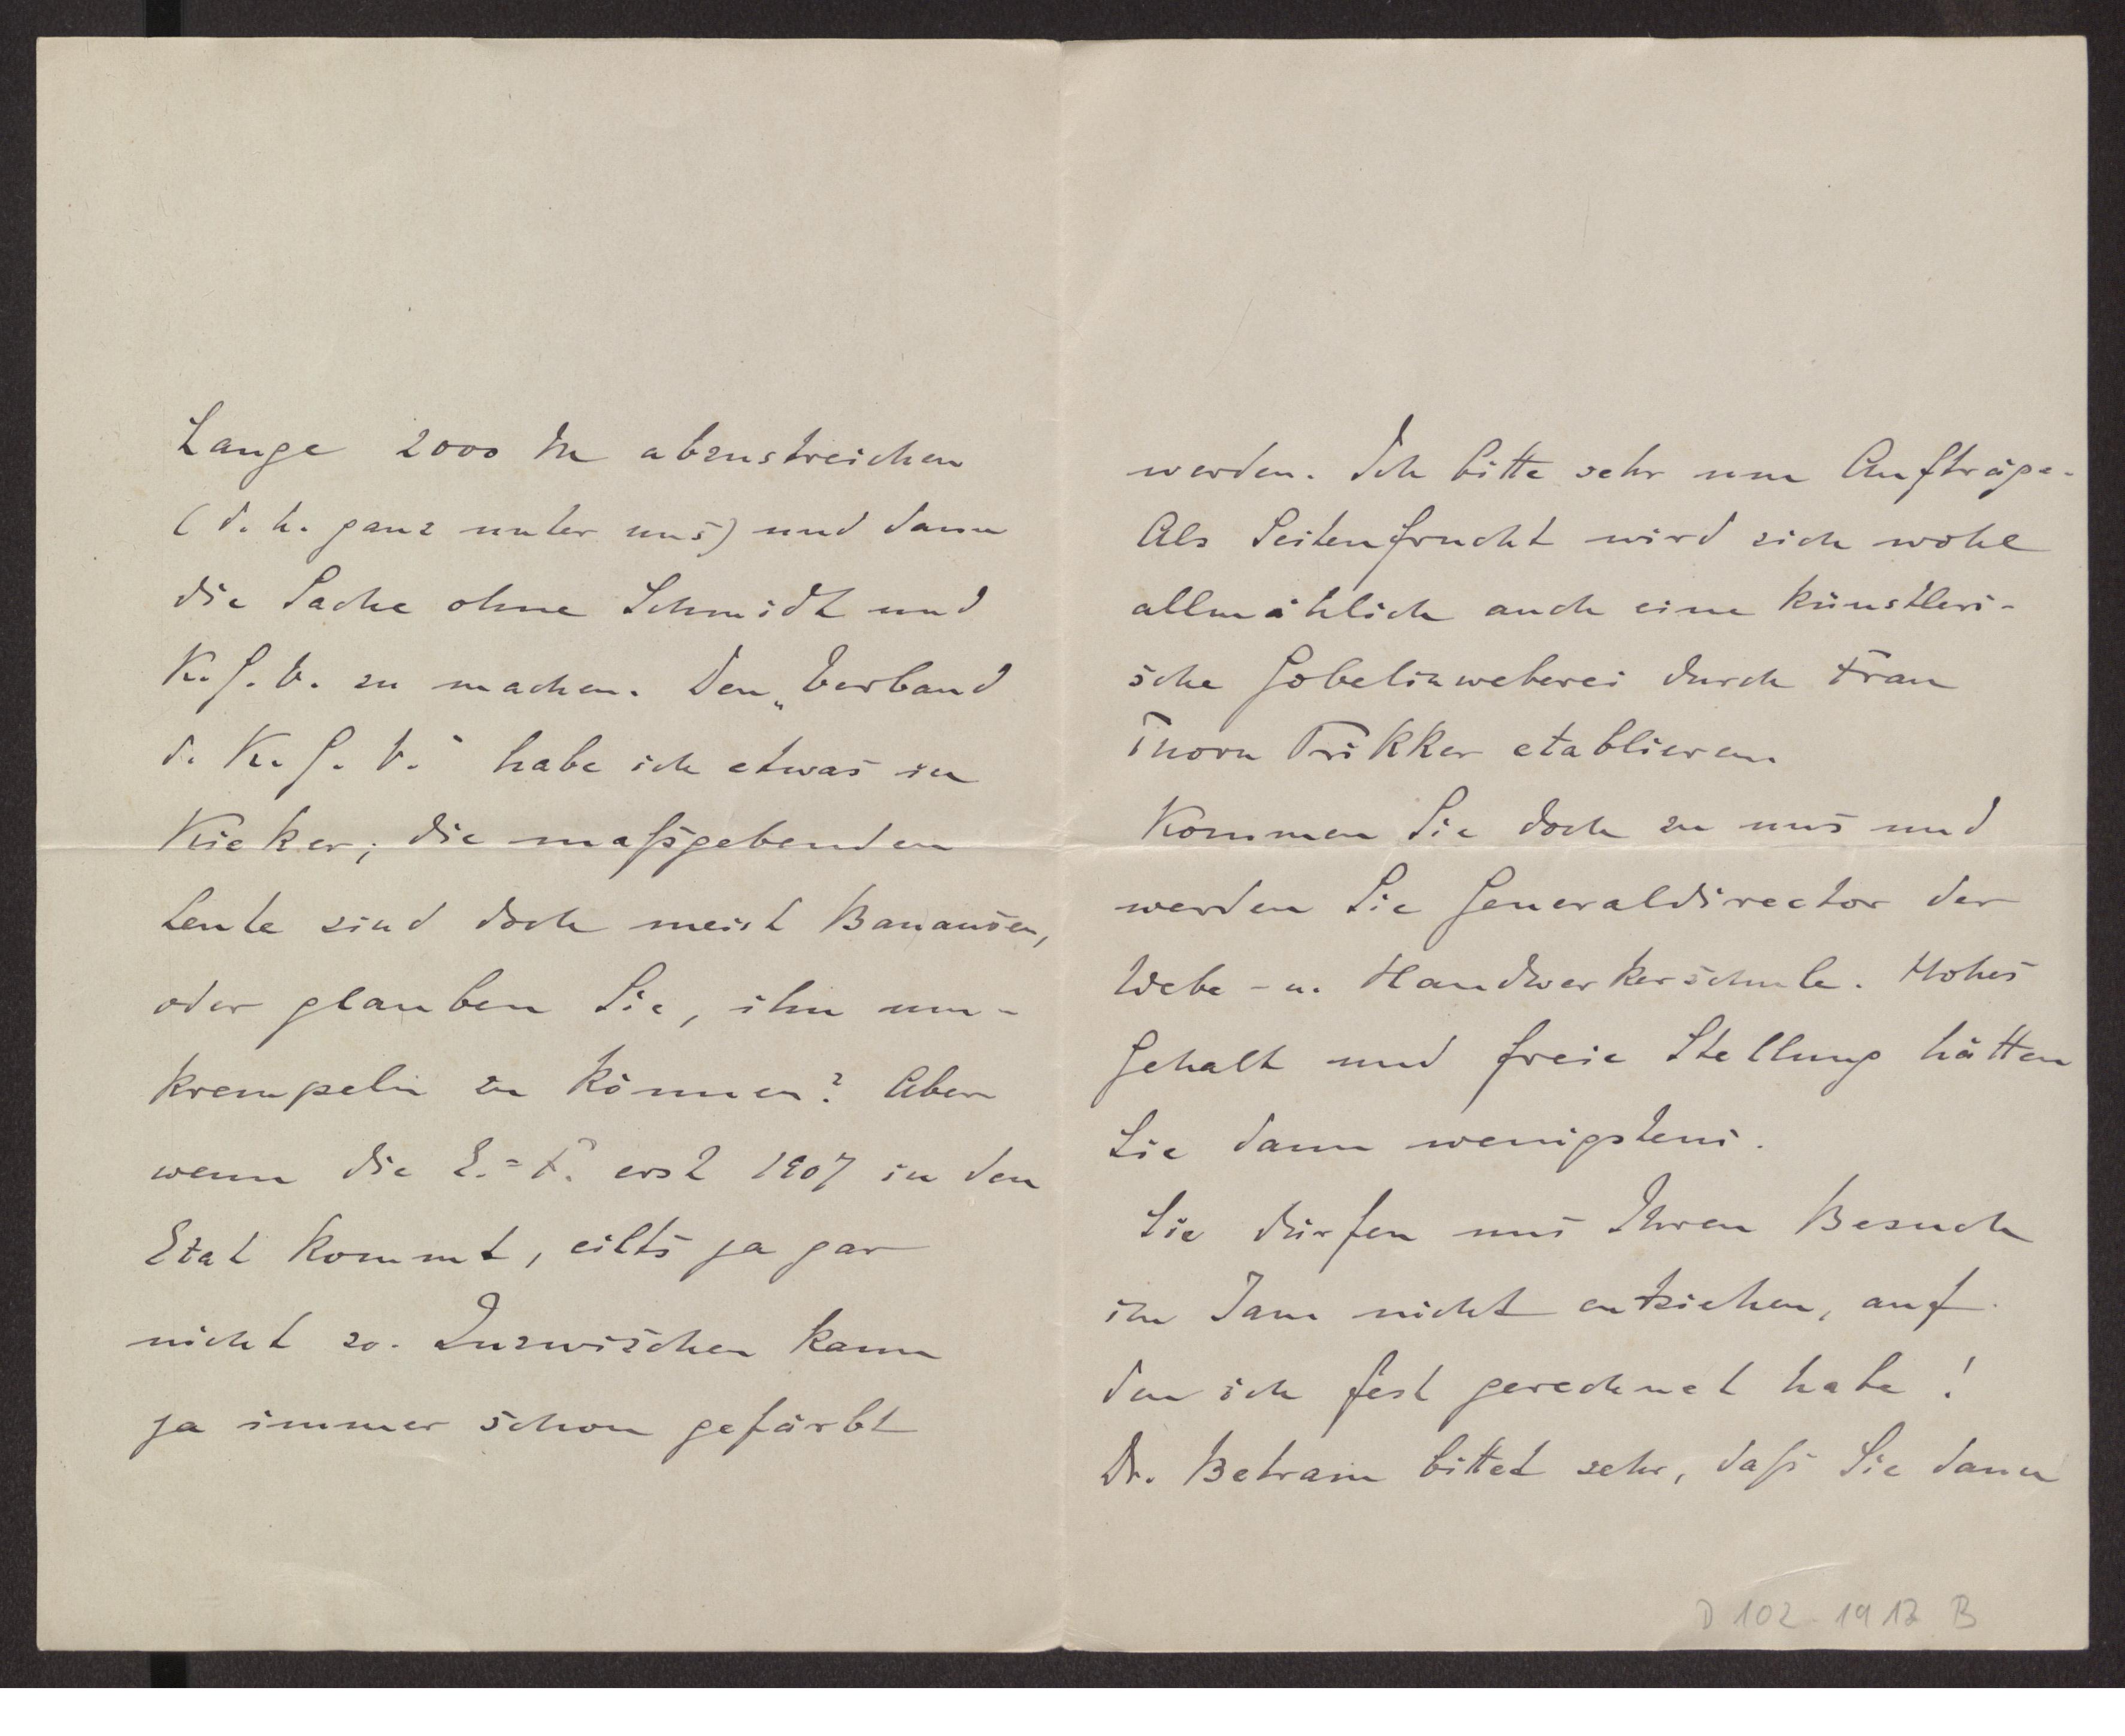 Lange 2000 M abzustreichen
(d. h. ganz unter uns) und dann
die Sache ohne Schmidt und
K. G. V. zu machen. Den „Verband
d. K. G. V.“ habe ich etwas im
Kieker; die maßgebenden
Leute sind doch meist Banausen,
oder glauben Sie, ihn um-
krempeln zu können? Aber
wenn die E.=F. erst 1907 in den
Etat kommt, eilts ja gar
nicht so. Inzwischen kann
ja immer schon gefärbt
werden. Ich bitte sehr um Aufträge.
Als Seitenfrucht wird sich wohl
allmählich auch eine künstleri-
sche Gobelinweberei durch Frau
Thorn Prikker etablieren.
Kommen Sie doch zu uns und
werden Sie Generaldirector der
Webe- u. Handwerkerschule. Hohes
Gehalt und freie Stellung hätten
Sie dann wenigstens.
Sie dürfen uns Ihren Besuch
im Jan. nicht entziehen, auf
den ich fest gerechnet habe!
Dr. Betram bittet sehr, daß Sie dann
D 102 - 1912 B